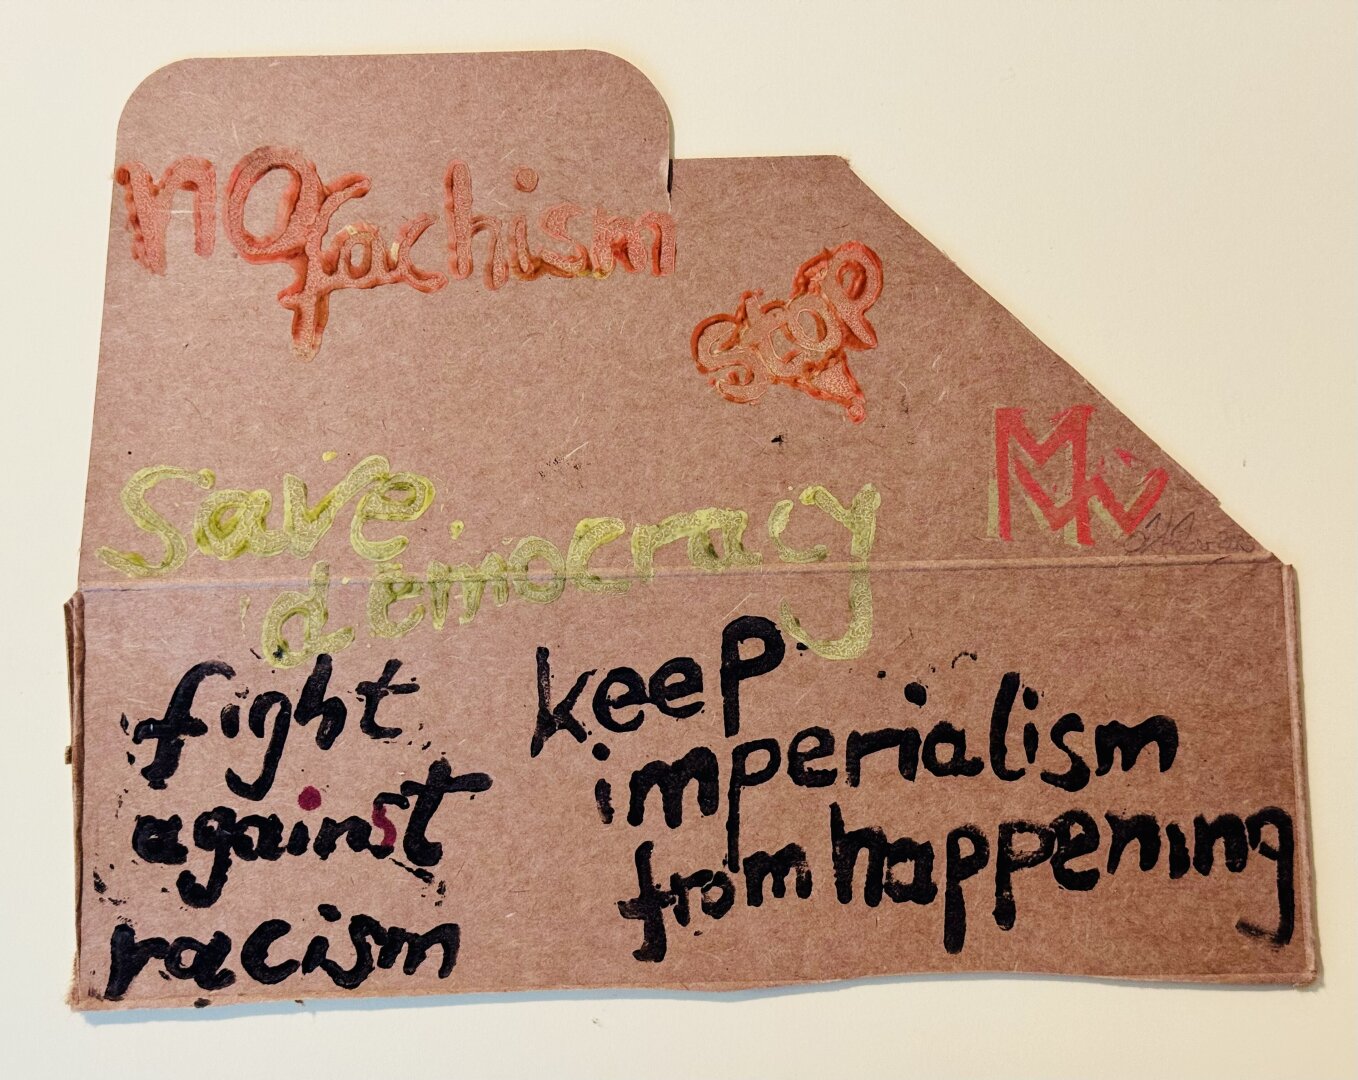 no fachism
stop
save
democracy
fight
against
racism
keep
imperialism
from happening